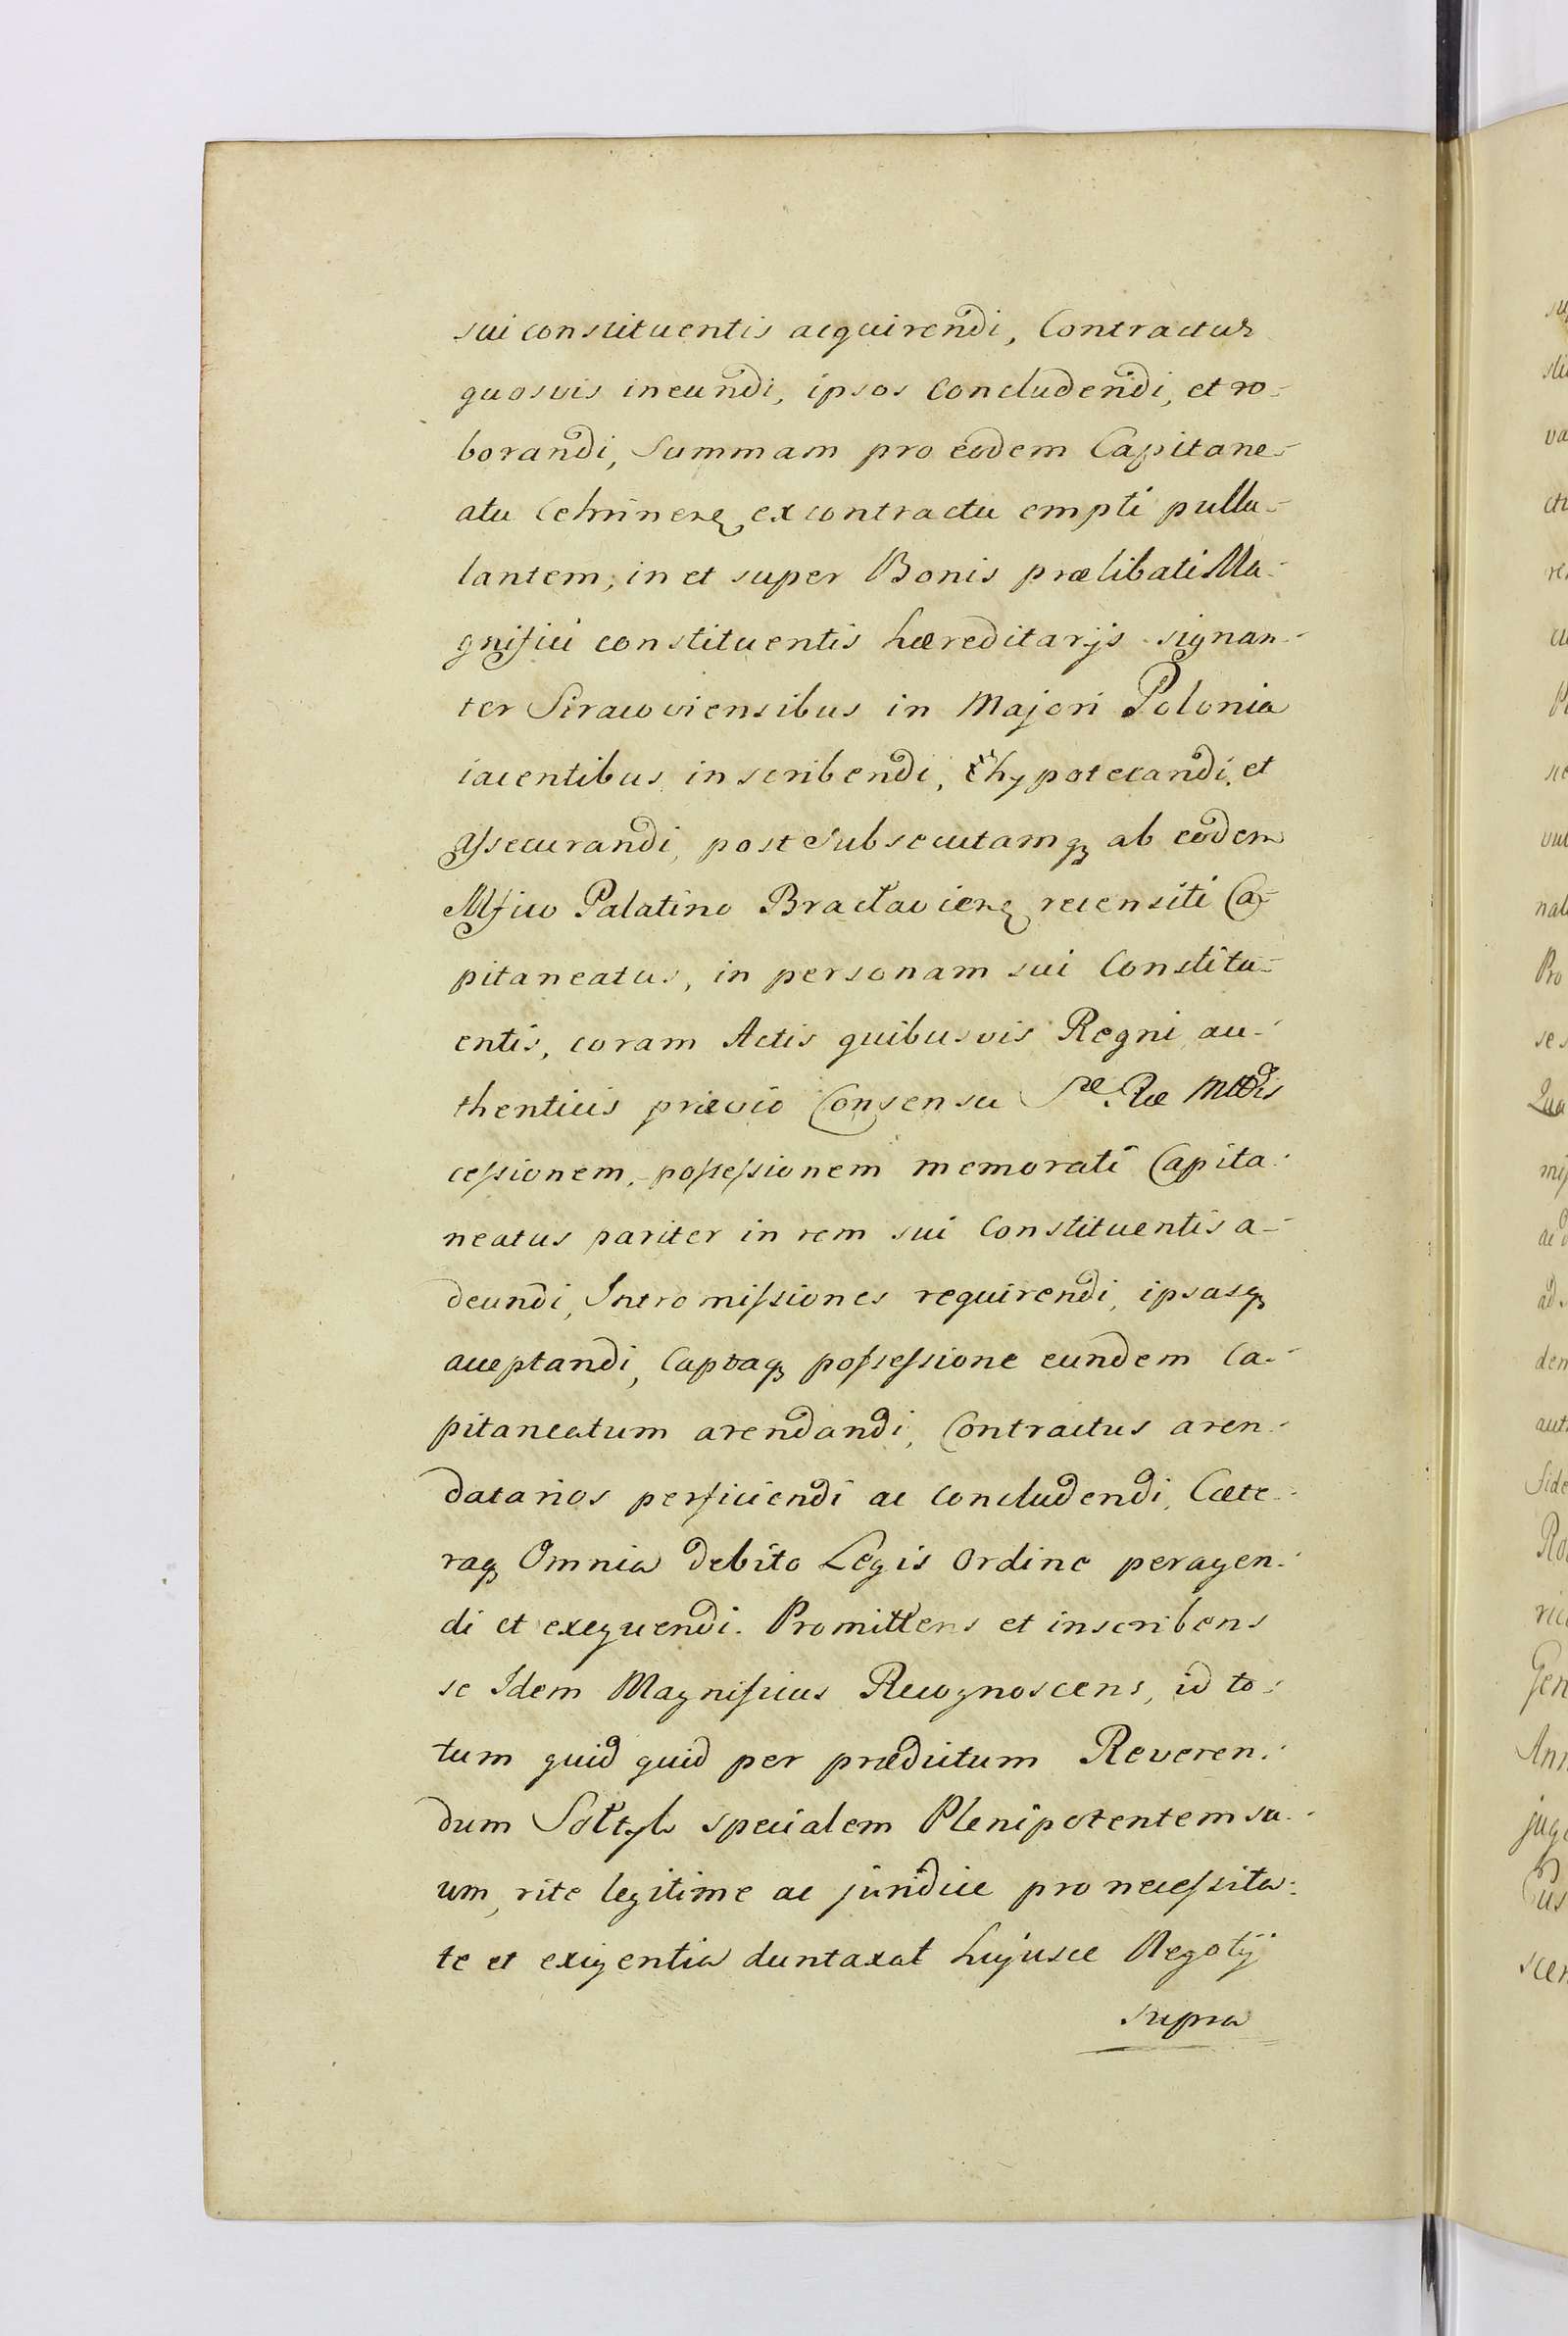 sui constituentis acquirendi, Contractus
quosvis ineundi, ipsos Concludendi, et ro-
borandi, Summam pro eodem Capitane-
atu ex contractu empti pullu-
lantem, in et super Bonis prælibati Ma-
gnifici constituentis hæreditarijs signan-
ter Siracoviensibus in Majori Polonia
iacentibus inscribendi, hypotecandi, et
assecurandi, post subsecutamq ab eodem
Mfico Palatino Bracłavienˢ recensiti Ca-
pitaneatus, in personam sui Constitu-
entis, coram Actis quibusvis Regni au-
thenticis prævio Consensu Sæ Ræ Mttis
cessionem, possessionem memorati Capita-
neatus pariter in rem sui Constituentis a-
deundi, Intromissiones requirendi, ipsasq
acceptandi, Captaq possessione eundem Ca-
pitaneatum arendandi, Contractus aren-
datarios perficiendi ac concludendi, Cæte-
raq Omnia debito Legis Ordine peragen-
di et exequendi. Promittens et inscribens
se Idem Magnificus Recognoscens, id to-
tum quid quid per prædictum Reveren-
dum Sołtyk specialem Plenipotentem su-
um, rite legitime ac juridice pro necessita-
te et exigentia duntaxat hujusce Negotij
supra